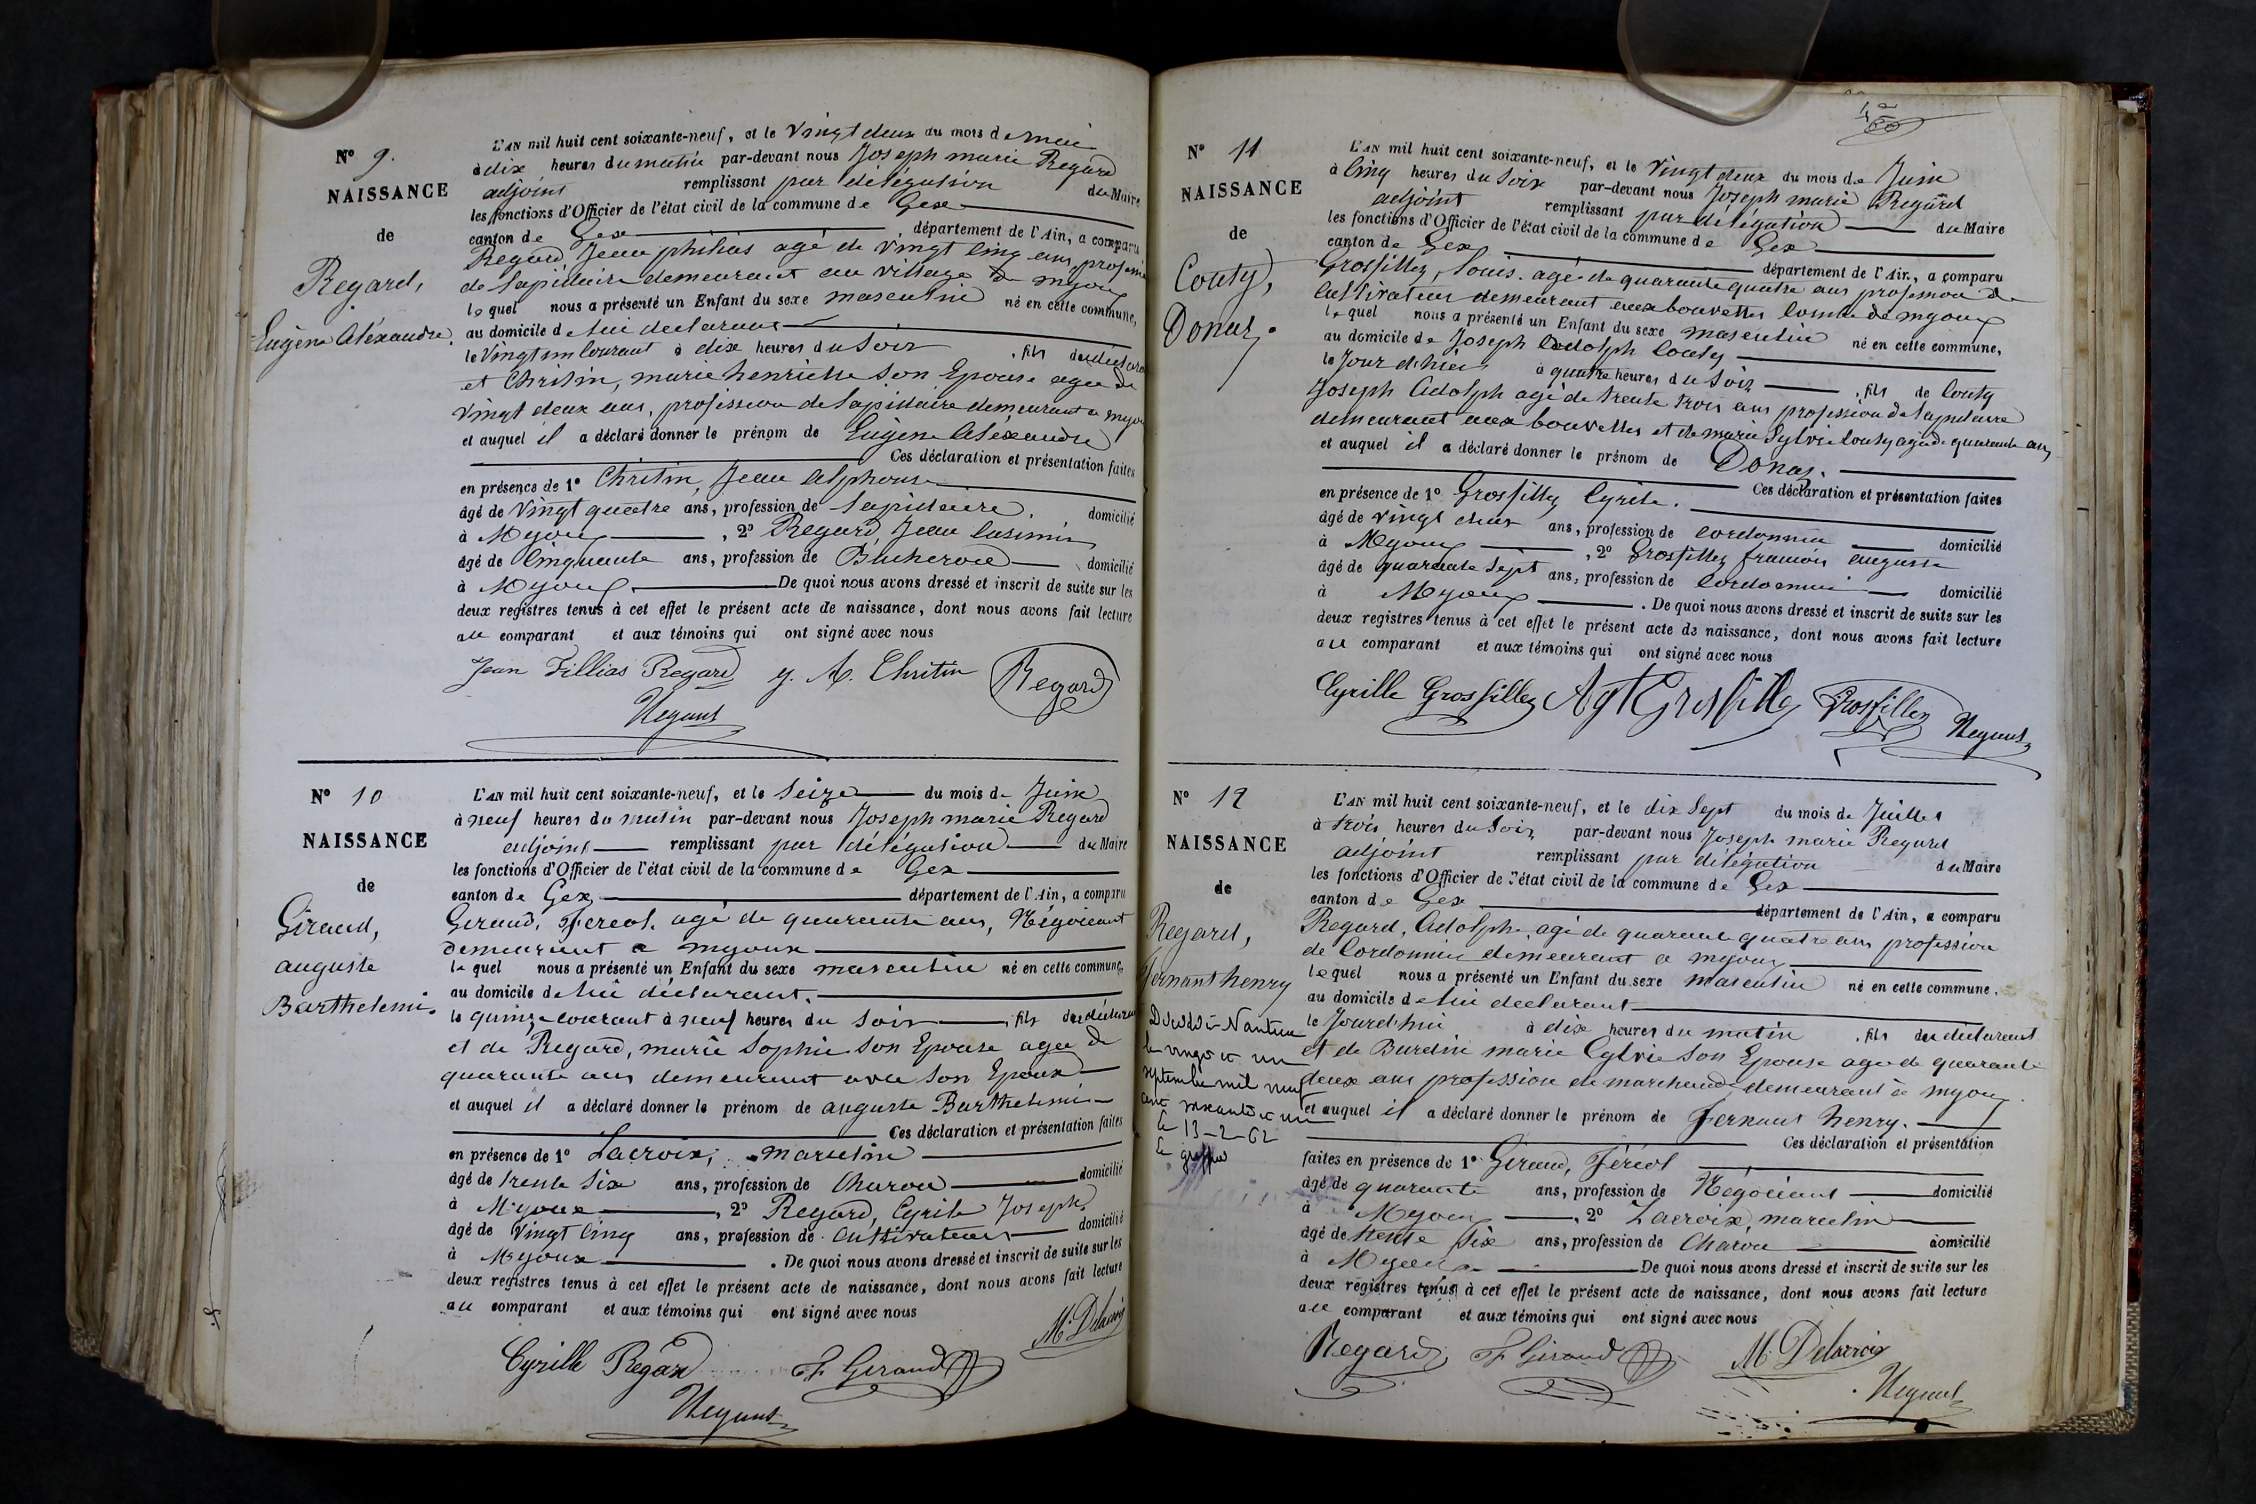 N° 9.
NAISSANCE
de
Regard,
Eugène Aléxandre.
L'AN mil huit cent soixante-neuf, et le Vingt deux du mois de mai
à dix heures du matin par-devant nous Joseph marie Regard
adjoint remplissant par délégation du Maire
les fonctions d'Officier de l'état civil de la commune de Gex
canton de Gex, département de l'Ain, a comparu
Regard, Jean philias agé de vingt cinq ans, profession
de lapidaire demeurant au village de myoux
le quel nous a présenté un Enfant du sexe masculin né en cette commune,
au domicile de lui déclarant
le Vingt un Courant à dix heures du Soir, fils du déclarant
et Chritin, marie henriette Son Epouse agée de
Vingt deux ans, profession de lapidaire demeurant a myoux
et auquel il a déclaré donner le prénom de Eugène Aléxandre
Ces déclaration et présentation faites
en présence de 1° Chritin, Jean Alphonse
âgé de Vingt quatre ans, profession de lapidaire, domicilié
à Myoux, 2° Regard, Jean Casimir
âgé de Cinquante ans, profession de Bucheron domicilié
à Myoux De quoi nous avons dressé et inscrit de suite sur les
deux registres tenus à cet effet le présent acte de naissance, dont nous avons fait lecture
au comparant et aux témoins qui ont signé avec nous
Jean Fillias Regard J. A. Chritin Regard
Regard
N° 10
NAISSANCE
de
Giraud,
auguste
Barthelemi.
L'AN mil huit cent soixante-neuf, et le Seize du mois de Juin
à neuf heures du matin par-devant nous Joseph marie Regard
adjoint remplissant par délégation du Maire
les fonctions d'Officier de l'état civil de la commune de Gex
canton de Gex département de l'Ain, a comparu
Giraud, Féréol, agé de quarante ans, Négociant
demeurant a myoux
le quel nous a présenté un Enfant du sexe masculin né en cette commune,
au domicile de lui déclarant.
le quinze courant à neuf heures du Soir, fils du déclarant
et de Regard, marie Sophie Son Epouse agée de
quarante ans demeurant avec Son Epoux
et auquel il a déclaré donner le prénom de auguste Barthelemi
Ces déclaration et présentation faites
en présence de 1° Lacroix, marcelin
âgé de trente Six ans, profession de Charon domicilié
à Myoux, 2° Regard, Cyrile Joseph
âgé de Vingt Cinq ans, profession de Cultivateur domicilié
à Myoux. De quoi nous avons dressé et inscrit de suite sur les
deux registres tenus à cet effet le présent acte de naissance, dont nous avons fait lecture
au comparant et aux témoins qui ont signé avec nous
M. Delacroix
Cyrille Regard F. Giraud
Regard
N° 11
NAISSANCE
de
Couty,
Donat.
L'AN mil huit cent soixante-neuf, et le Vingt deux du mois de Juin
à Cinq heures du Soir par-devant nous Joseph marie Regard
adjoint remplissant par délégation du Maire
les fonctions d'Officier de l'état civil de la commune de Gex
canton de Gex département de l'Ain, a comparu
Grosfillez, Louis, agé de quarante quatre ans profession de
Cultivateur demeurant aux bouvettes Combe de myoux
le quel nous a présenté un Enfant du sexe masculin né en cette commune,
au domicile de Joseph Adolph Couty
le Jour d'hier à quatre heures du Soir, fils de Couty
Joseph Adolph agé de trente trois ans profession de lapidaire
demeurant aux bouvettes et de marie Sylvie Couty agée de quarante ans
et auquel il a déclaré donner le prénom de Donat.
Ces déclaration et présentation faites
en présence de 1° Grosfillez Cyrile.
âgé de vingt deux ans, profession de cordonnier domicilié
à Myoux, 2° Grosfillez françois auguste
âgé de quarante Sept ans, profession de Cordonnier domicilié
à Myoux. De quoi nous avons dressé et inscrit de suite sur les
deux registres tenus à cet effet le présent acte de naissance, dont nous avons fait lecture
au comparant et aux témoins qui ont signé avec nous
Cyrille Grosfillez Agt Grosfillez Grosfillez Regard
N° 12
NAISSANCE
de
Regard,
Fernant henry
Décédé à Nantua
le vingt et un
septembre mil neuf
cent soixante et un
le 13-2-62
Le greffier
L'AN mil huit cent soixante-neuf, et le dix Sept du mois de Juillet
à trois heures du Soir par-devant nous Joseph marie Regard
adjoint remplissant par délégation du Maire
les fonctions d'Officier de l'état civil de la commune de Gex
canton de Gex département de l'Ain, a comparu
Regard, Adolphe, agé de quarante quatre ans profession
de Cordonnier demeurant a myoux
le quel nous a présenté un Enfant du sexe masculin né en cette commune.
au domicile de lui declarant
le Jourd'hui à dix heures du matin, fils du declarant
et de Burdin marie Cylvie Son Epouse agée de quarante
deux ans profession de marchande demeurant à myoux.
et auquel il a déclaré donner le prénom de Fernant henry.
Ces déclaration et présentation
faites en présence de 1° Giraud, Féréol
âgé de quarante ans, profession de Négociant domicilié
à Myoux, 2° Lacroix, marcelin
âgé de trente Six ans, profession de Charon domicilié
à Myoux De quoi nous avons dressé et inscrit de suite sur les
deux régistres tenus à cet effet le présent acte de naissance, dont nous avons fait lecture
au comparant et aux témoins qui ont signé avec nous
Regard F. Giraud M. Delacroix
Regard